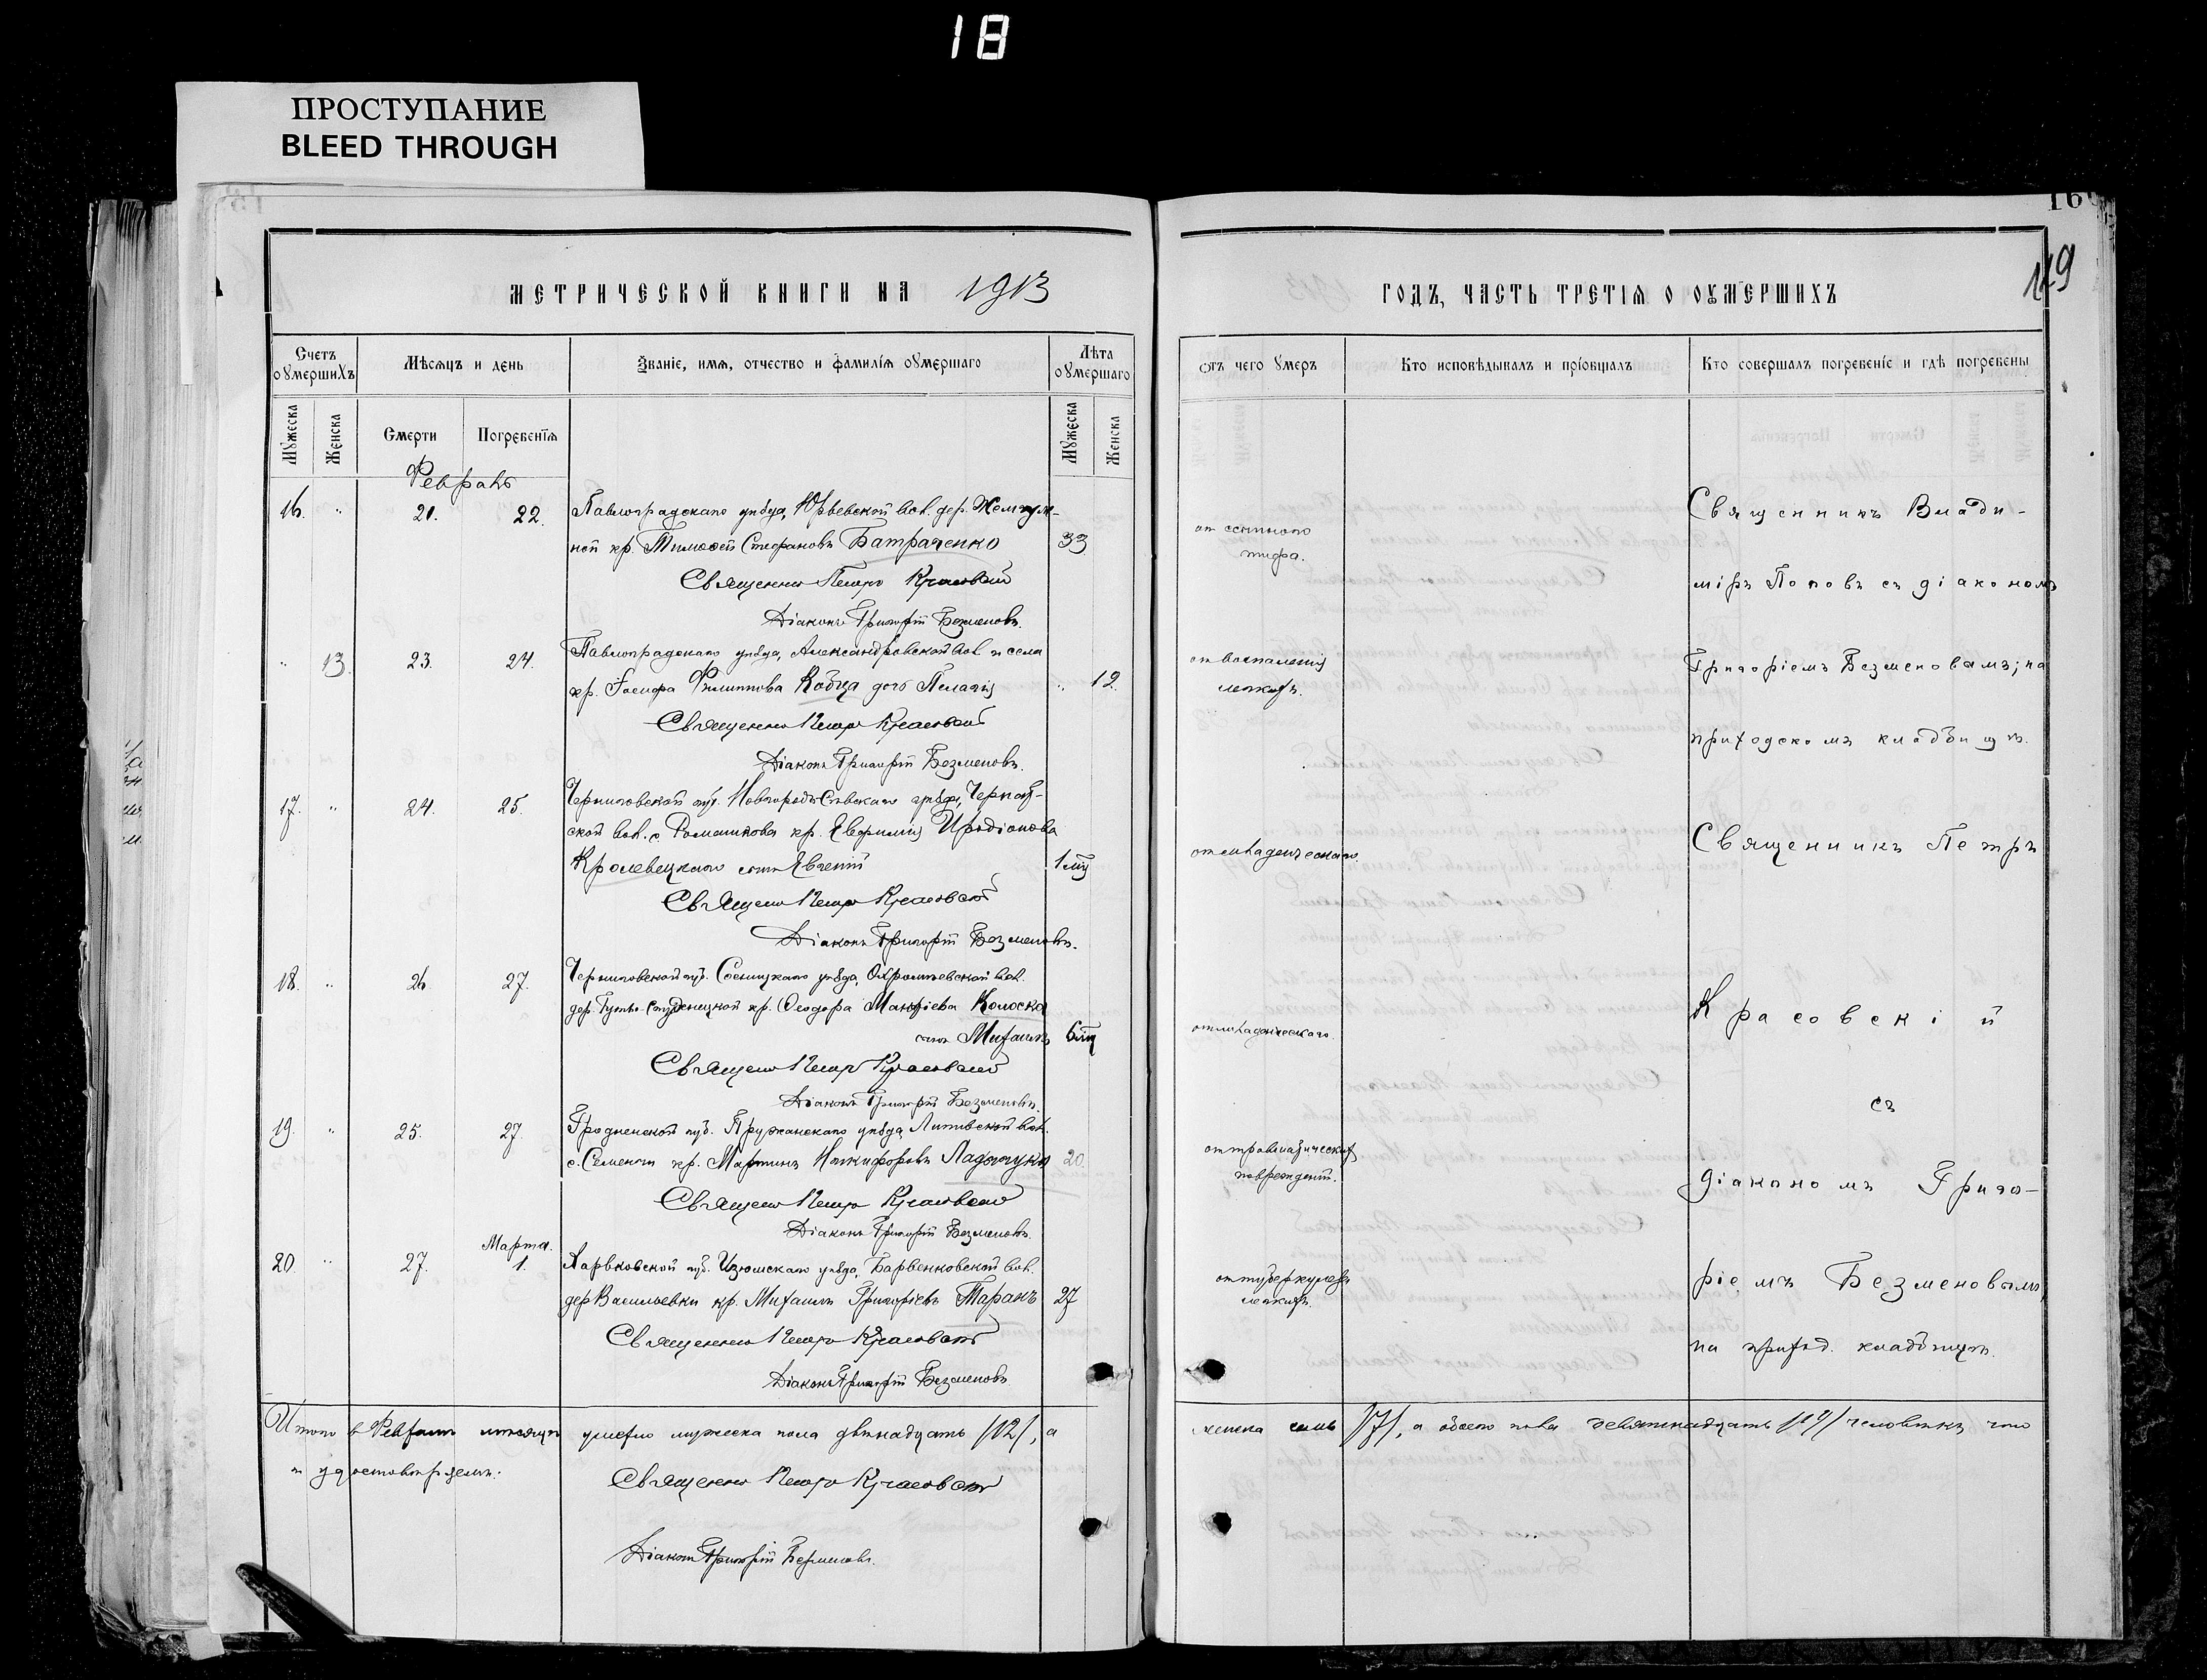 18
ПРОСТУПАНИЕ
BLEED THROUGH
МЕТРИЧЕСКОЙ КНИГИ НА 1913
Счетъ оумершихъ
Мѣсяцъ и день
Званіе, имя, отчество и фамилія оумершаго
Лѣта оумершаго
Мужеска
Женска
Смерти
Погребенія
Мужеска
Женска
Февраль
16. " 21. 22. Павлоградскаго уѣзда, Юрьевской вол. дер.
кр. Тимофей Стефановъ Батраченко 33
Священникъ Петръ Красовскій
Діаконъ Григорій Безменовъ.
" 13. 23. 24. Павлоградскаго уѣзда, Александровской вол. и села
кр. Іосифа Филиппова Кобца дочь Пелагія " 12.
Священникъ Петръ Красовскій
Діаконъ Григорій Безменовъ.
17. " 24. 25. Черниговской губ. Новгородъ Сѣвскаго уѣзда,
ской вол. с. Ромашкова кр. Евфимія Иродіонова
Кролевецкаго сынъ Евгеній 1 мц
Священ. Петръ Красовскій
Діаконъ Григорій Безменовъ.
18. " 26. 27. Черниговской губ. Сосницкаго уѣзда, вол.
дер. кр. Ѳеодора Колоска
сынъ Михаилъ 6 мц
Священ. Петръ Красовскій
Діаконъ Григорій Безменовъ.
19. " 25. 27. Гродненской губ. Пружанскаго уѣзда, вол.
с. кр. Мартинъ Никифоровъ 20.
Священ. Петръ Красовскій
Діаконъ Григорій Безменовъ.
Марта.
20. " 27. 1. Харьковской губ. Изюмскаго уѣзда, Барвенковской вол.
дер. Васильевки кр. Михаилъ Григорьевъ Таранъ 27
Священникъ Петръ Красовскій
Діаконъ Григорій Безменовъ
Итого въ Февралѣ мѣсяцѣ умерло мужеска пола двѣнадцать /12/, а
и удостовѣряемъ.
Священникъ Петръ Красовскій
Діаконъ Григорій Безменовъ.
16
119
ГОДЪ, ЧАСТЬ ТРЕТІЯ О ОУМЕРШИХЪ
Отъ чего умеръ
Кто исповѣдывалъ и пріобщалъ
Кто совершалъ погребеніе и гдѣ погребены
от сыпного
тифа.
Священникъ Влади-
міръ Поповъ съ діакономъ
от воспаленія
легкихъ.
Григоріемъ Безменовымъ; на
приходскомъ кладбищѣ.
от младенческаго.
Священникъ Петръ
от младенческаго.
Красовскій
съ
от травматическихъ
поврежденій.
діакономъ Григо-
от туберкулеза
легкихъ.
ріемъ Безменовымъ
на приход. кладбищѣ.
женска семь /7/, а обоего пола девятнадцать /19/ человѣкъ что